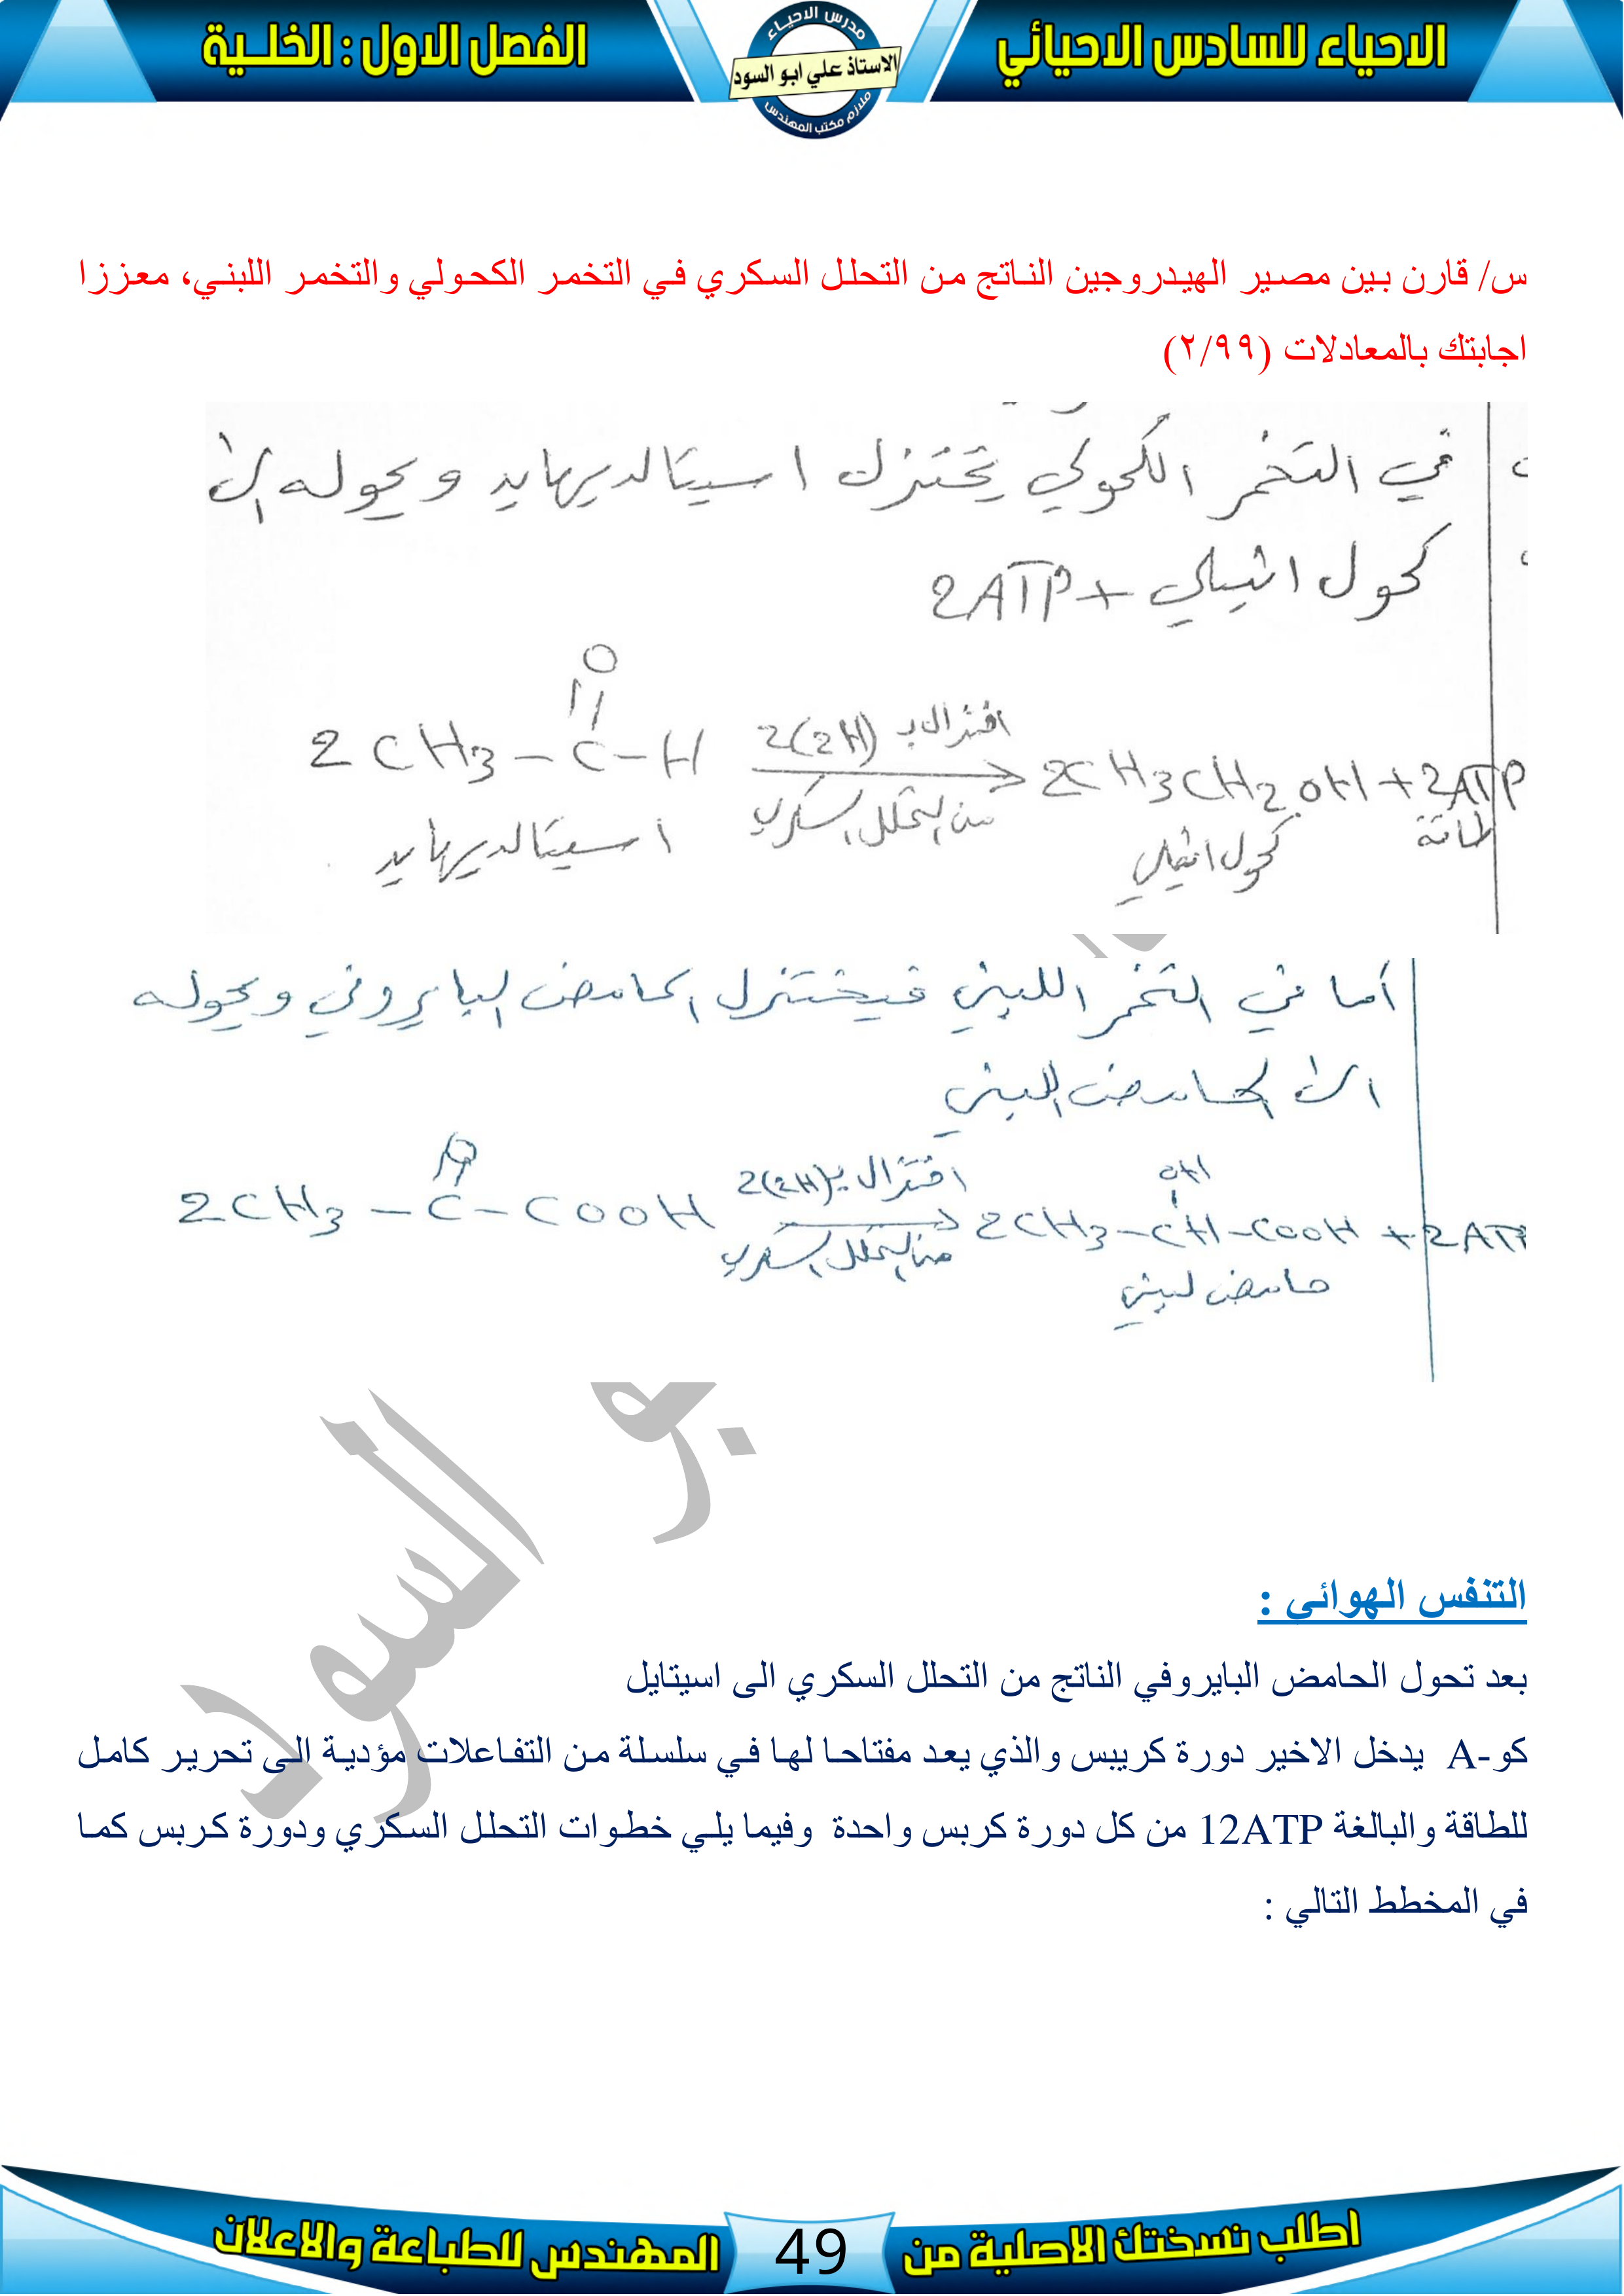 الاحياء للسادس الاحيائي
مدرس الاحياء
الاستاذ علي ابو السود
ملازم مكتب المهندس
الفصل الاول : الخلــية
س/ قارن بين مصير الهيدروجين الناتج من التحلل السكري في التخمر الكحولي والتخمر اللبني، معززا
اجابتك بالمعادلات (٢/٩٩)
في التخمر الكحولي يختزل اسيتالديهايد ويحوله الى
كحول اثيلي + 2ATP
O
2CH3 – C – H اختزال بـ 2(2H) 2CH3CH2OH + 2ATP
من التحلل السكري
اسيتالديهايد كحول اثيلي طاقة
أما في التخمر اللبني فيختزل الحامض البايروفي ويحوله
الى الحامض اللبني
O OH
2CH3 – C – COOH اختزال بـ 2(2H) 2CH3 – CH – COOH + 2ATP
من التحلل السكري
حامض لبني
بو السود
التنفس الهوائي :
بعد تحول الحامض البايروفي الناتج من التحلل السكري الى اسيتايل
كو-A يدخل الاخير دورة كريبس والذي يعد مفتاحا لها في سلسلة من التفاعلات مؤدية الى تحرير كامل
للطاقة والبالغة 12ATP من كل دورة كربس واحدة وفيما يلي خطوات التحلل السكري ودورة كربس كما
في المخطط التالي :
اطلب نسختك الاصلية من 49 المهندس للطباعة والاعلان